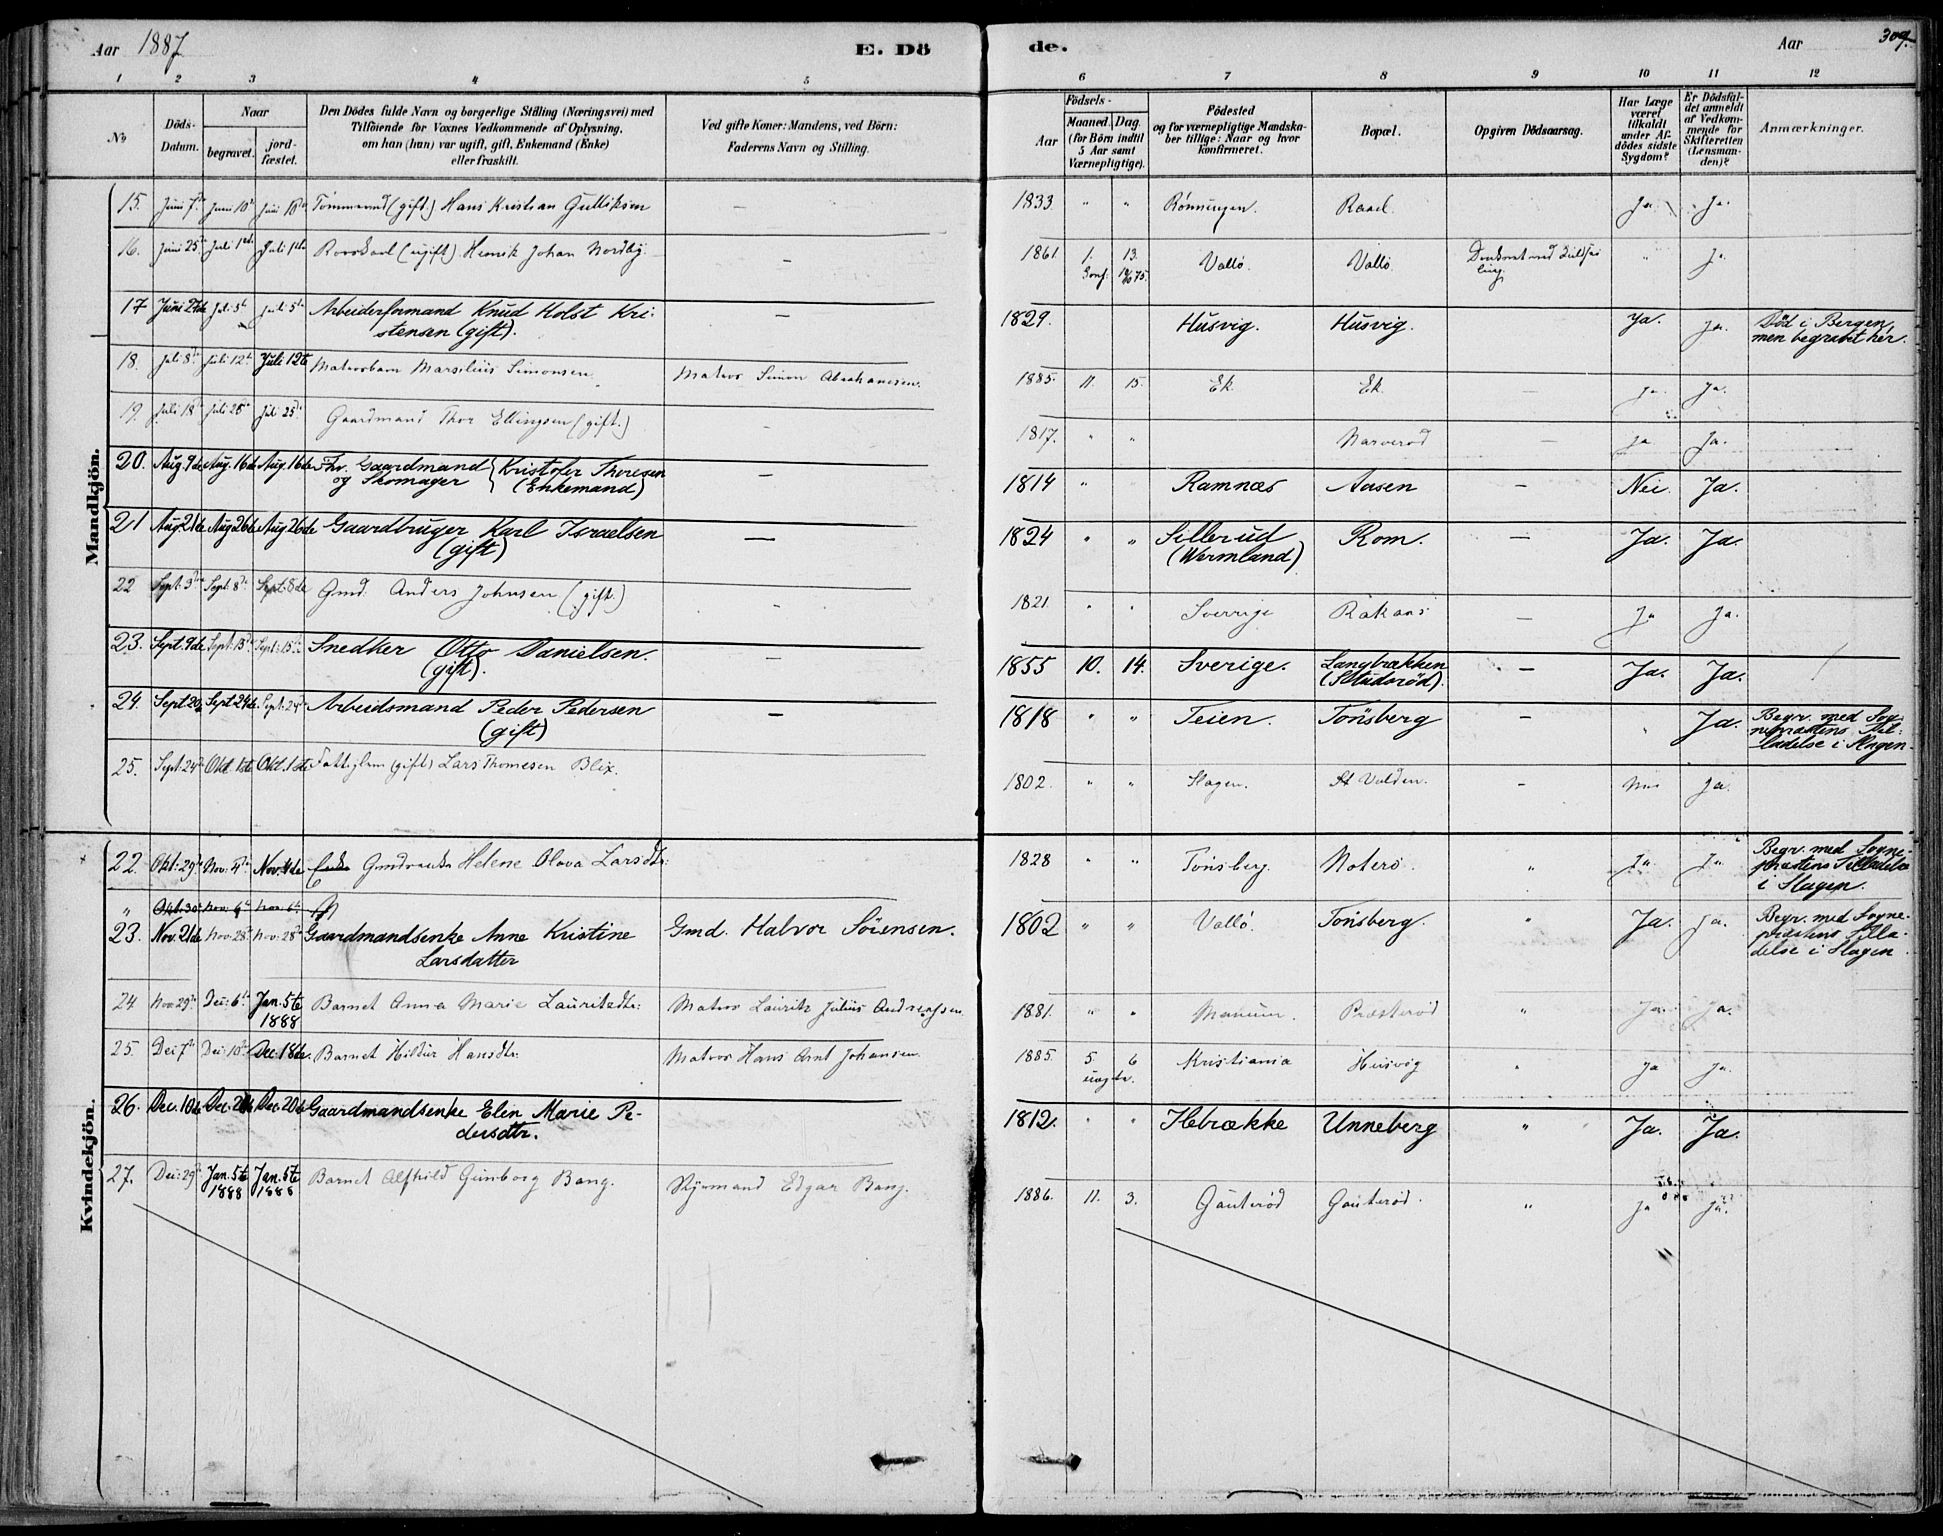 Aar 1887 E. Dö de. Aar 309.
1 2 3 4 5 6 7 8 9 10 11 12
No
Döds-Datum.
Naar
begravet.
jord-fæstet.
Den Dödes fulde Navn og borgerlige Stilling (Næringsvei) med
Tilföiende for Voxnes Vedkommende af Oplysning,
om han (hun) var ugift, gift, Enkemand (Enke)
eller fraskilt.
Ved gifte Koner: Mandens, ved Börn:
Faderens Navn og Stilling.
Födsels-
Aar
Maaned. Dag.
(for Börn indtil
5 Aar samt
Værnepligtige).
Födested
og for værnepligtige Mandska-
ber tillige: Naar og hvor
konfirmeret.
Bopæl.
Opgiven Dödsaarsag.
Har Læge
været
tilkaldt
under Af-
dödes sidste
Sygdom?
Er Dödsfal-
det anmeldt
af Vedkom-
mende for
Skifteretten
(Lensman-
den)?
Anmærkninger.
Mandkjön.
15. Juni 7de Juni 10de Juni 10de (gift) Hans Kristian Gulliksen — 1833 " " Rönningen. Raael. Ja Ja.
16. Juni 25de Juli 1ste Juli 1ste (ugift) Henrik Johan Nordby. — 1861 1. 13. Vallö. Vallö " Ja
Conf. 75.
17 Juni 27de Juli 5te Juli 5te Arbeiderformand Knud Holst Kri-
stensen (gift). — 1829. Husvig. Husvig. Ja. Ja. Död i Bergen,
men begravet her.
18. Juli 8de Juli 12te Juli 12te Matrosbarn Marselius Simonsen Matros Simon Abrahamsen. 1885. 11. 15. Ek Ek. — Ja. Ja.
19. Juli 18de Juli 25de Juli 25de Gaardmand Thor Ellingsen (gift.) — 1817. " " Narveröd — Ja Ja.
20. Aug. 9de Aug. 16de Aug. 16de Fhv. Gaardmand og Skomager } Kristofer Thoresen
(Enkemand) — 1814 " " Ramnæs Aasen — Nei. Ja.
21 Aug 21de Aug 26de Aug 26de Gaardbruger Karl Israelsen
(gift) — 1824 " " Sillerud
(Wermland) Rom. — Ja. Ja.
22 Sept. 3die Sept. 8de Sept. 8de Gmd. Anders Johnsen (gift) " 1821. " " Sverrige Rakaas — Ja Ja.
23. Sept. 9de Sept. 15de Sept. 15de Snedker Otto Danielsen.
(gift). — 1855 10. 14. Sverige. Langbrækken
— Ja. Ja.
24. Sept 20de Sept 24de Sept. 24de Arbeidsmand Peder Pedersen
(gift) — 1818 " " Teien. Tönsberg — " Ja. Begr. med Sog-
neprestens Til-
ladelse i Slagen.
25. Sept. 24de Okt. 1ste Okt. 1ste Fattiglem (gift) Lars Thomesen Blix. 1802. " " Slagen. — Nei Ja.
Kvindekjön.
22. Okt. 29de Nov. 4de Nov. 4de Gmdsenke Helene Olava Larsdtr. 1828 " " Tönsberg. Noterö " Ja Ja Begr. med Sogne-
prestens Tilladelse
i Slagen.
" Okt. 30te Nov. 6te Nov. 6te
23. Nov. 21de Nov. 28de Nov. 28de Gaardmandsenke Anne Kristine
Larsdatter Gmd. Halvor Sörensen. 1802 " " Vallö. Tönsberg. " Ja. Ja. Begr. med Sogne-
prestens Tilla-
delse i Slagen
24 Nov. 29de Dec. 6te Jan. 5te
1888 Barnet Anna Marie Lauritsdtr. Matros Lauritz Julius Andreassen. 1881. " " Manum. Præsteröd " Ja. Ja.
25. Dec 7de Dec. 10de Dec. 18de Barnet Hildur Hansdtr. Matros Hans Arnt Johansen. 1885. 5. 6 Kristiania Husvig " Ja Ja.
uægte.
26. Dec. 10de Dec. 20de Dec. 20de Gaardmandsenke Elen Marie Pe-
dersdtr. 1812. " " Ilebrække Unneberg " Ja. Ja.
27. Dec. 29de Jan. 5te
1888 Jan. 5te
1888 Barnet Alfhild Gunborg Bang. Styrmand Edgar Bang. 1886. 11. 3. Gauteröd Gauteröd. " Ja Ja.